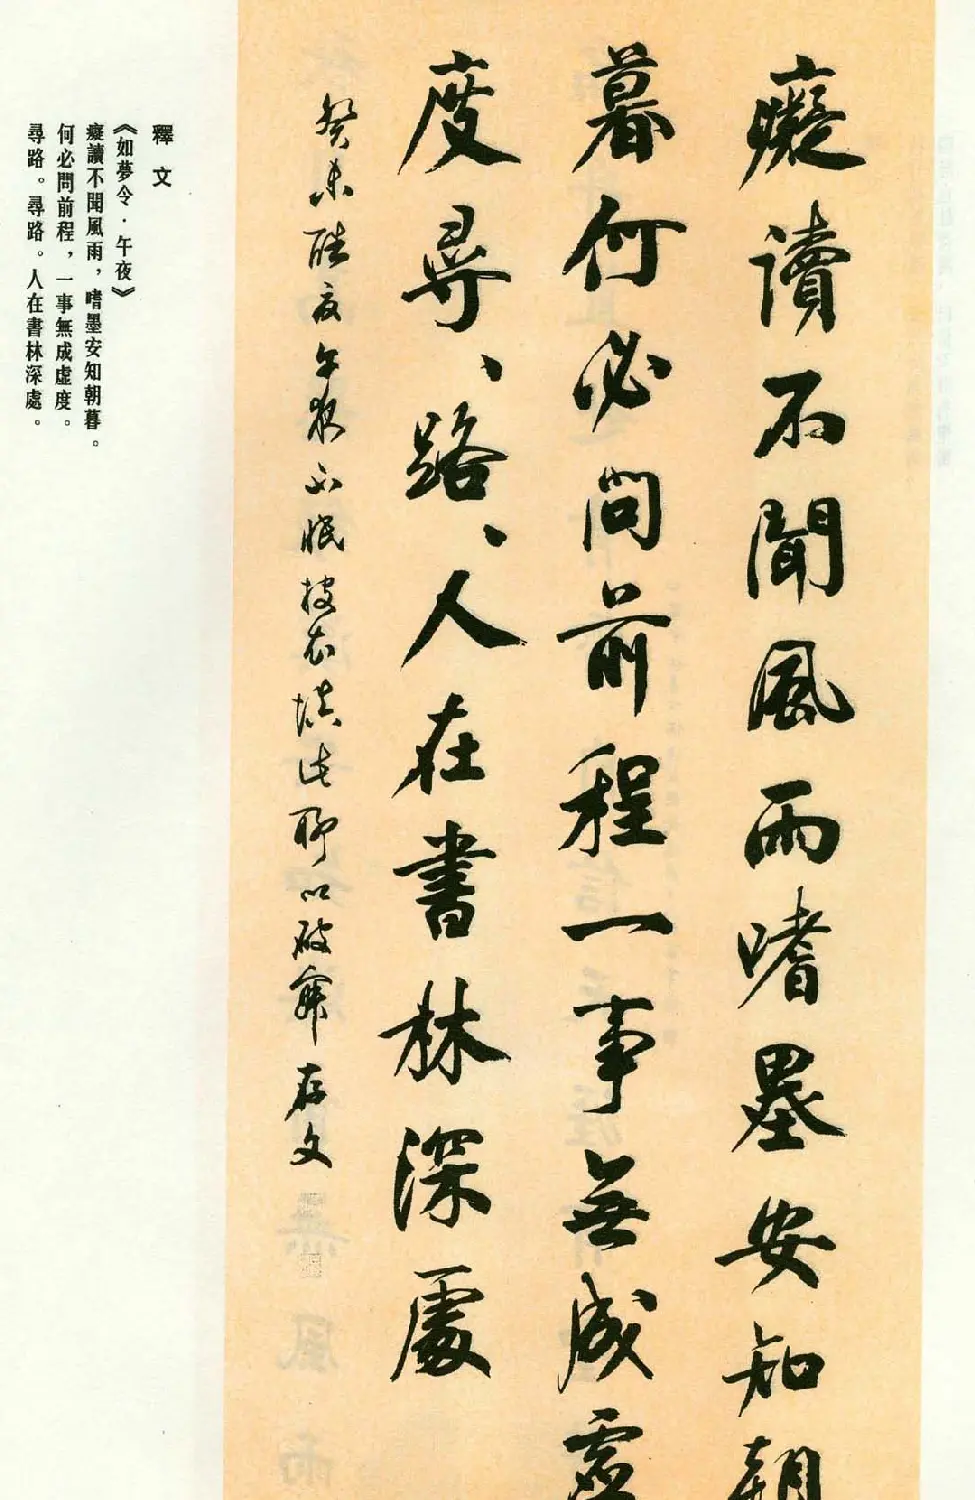 癡讀不聞風雨嗜墨安知朝
暮何必問前程一事無成虛
度尋、路、人在書林深處
癸未酷夏午夜不眠披衣填此聊以破寐存文
釋文
《如夢令·午夜》
癡讀不聞風雨，嗜墨安知朝暮。
何必問前程，一事無成虛度。
尋路。尋路。人在書林深處。